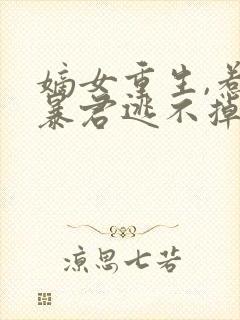 嫡女重生,惹
暴君逃不掉
凉思七若